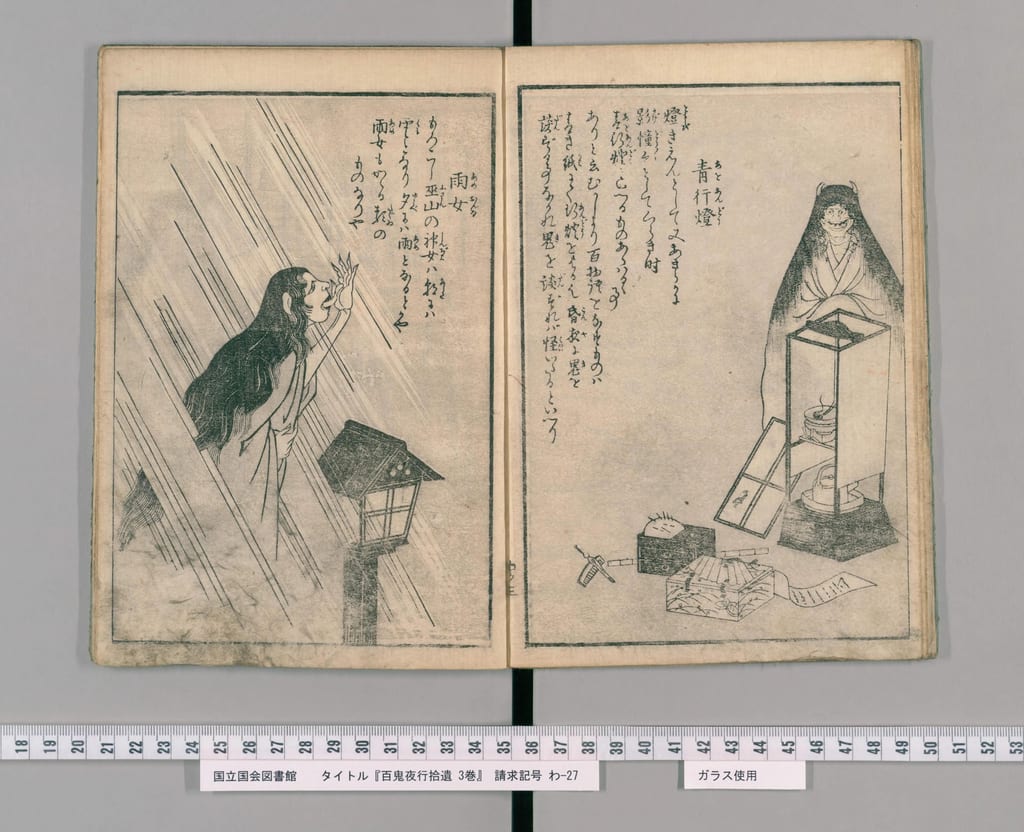 青行燈
燈きえんとして又あきらかに
影憧々としてくらき時
青行燈といへるものあらはるゝ事
ありと云むかしより百物語をなすものハ
青き紙にて行燈をはる也昏夜に鬼を
談ずる事なかれ鬼を談ずれバ怪いたるといへり
雨女
もろこし巫山の神女ハ朝にハ
雲となり夕にハ雨となるとかや
雨女もかゝる類の
ものなりや
18 19 20 21 22 23 24 25 26 27 28 29 30 31 32 33 34 35 36 37 38 39 40 41 42 43 44 45 46 47 48 49 50 51 52 53
国立国会図書館 タイトル『百鬼夜行拾遺 3巻』 請求記号 わ-27
ガラス使用